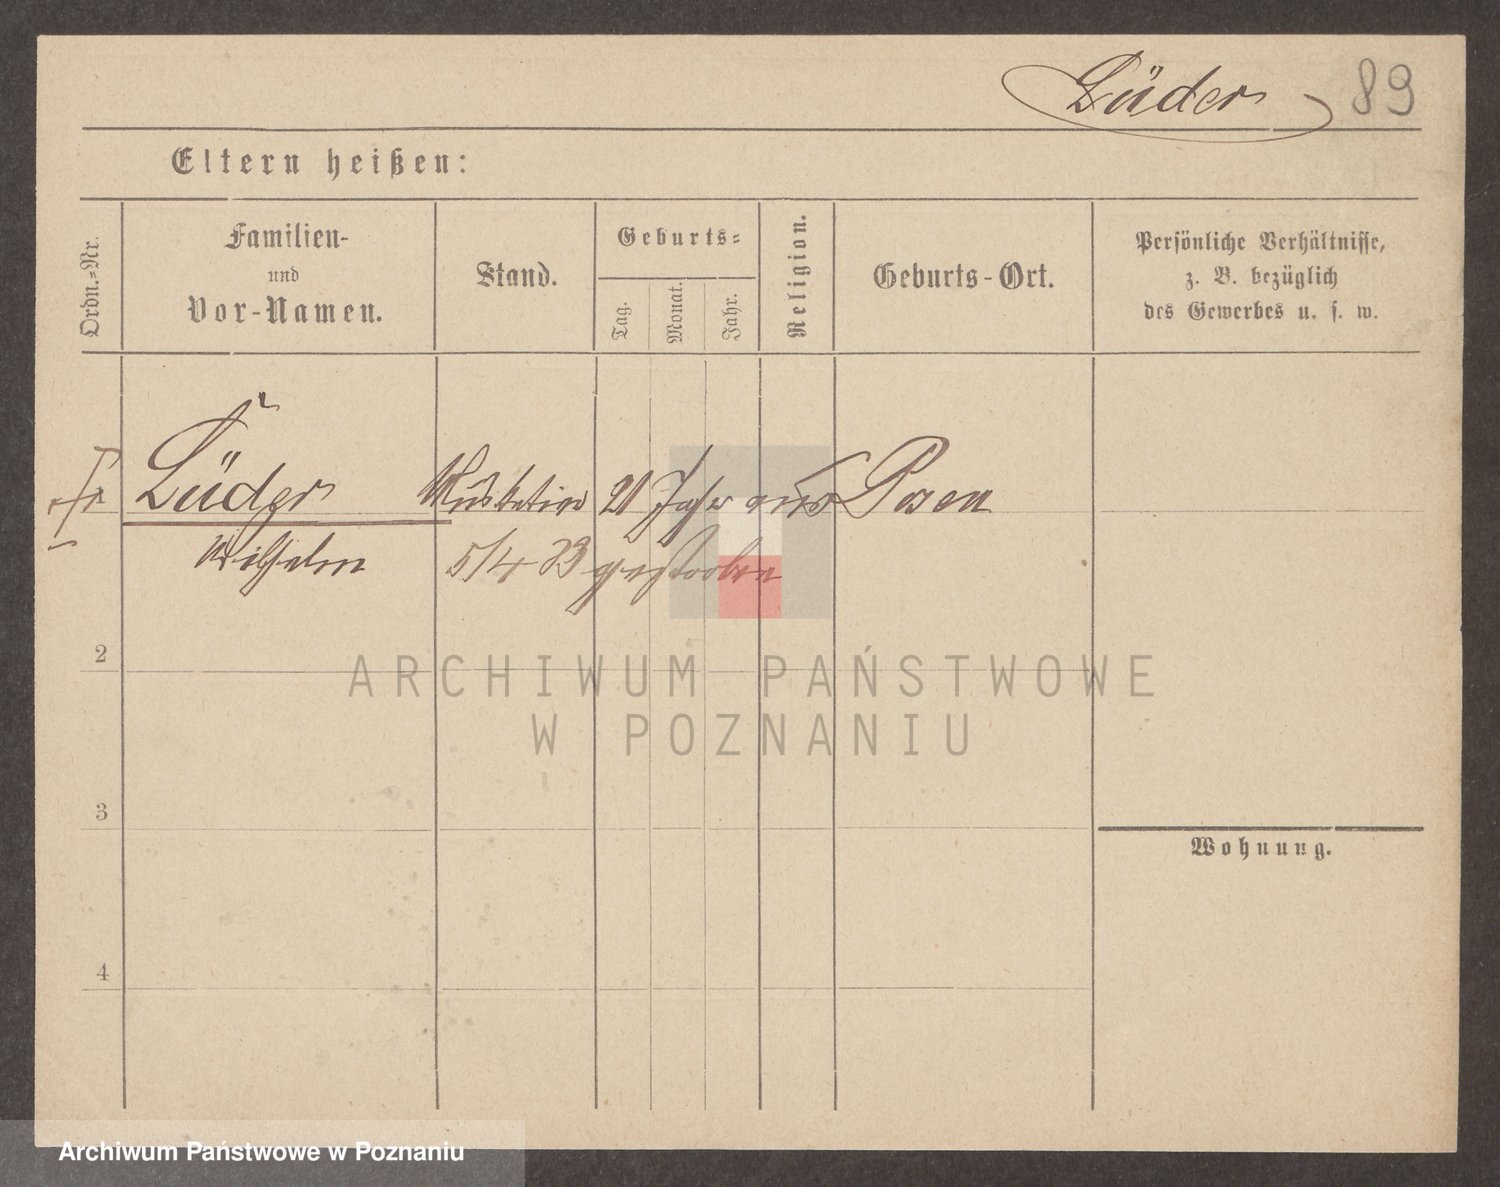 Lüder 89
Eltern heißen:
Ordn.-Nr.
Familien-
und
Vor-Namen.
Stand.
Geburts-
Tag.
Monat.
Jahr.
Religion.
Geburts-Ort.
Persönliche Verhältnisse,
z. B. bezüglich
des Gewerbes u. s. w.
Lüder Musketier 21 Jahr aus Posen
Wilhelm 5/4 73 gestorben
2
3
4
Wohnung.
ARCHIWUM PAŃSTWOWE
W POZNANIU
Archiwum Państwowe w Poznaniu